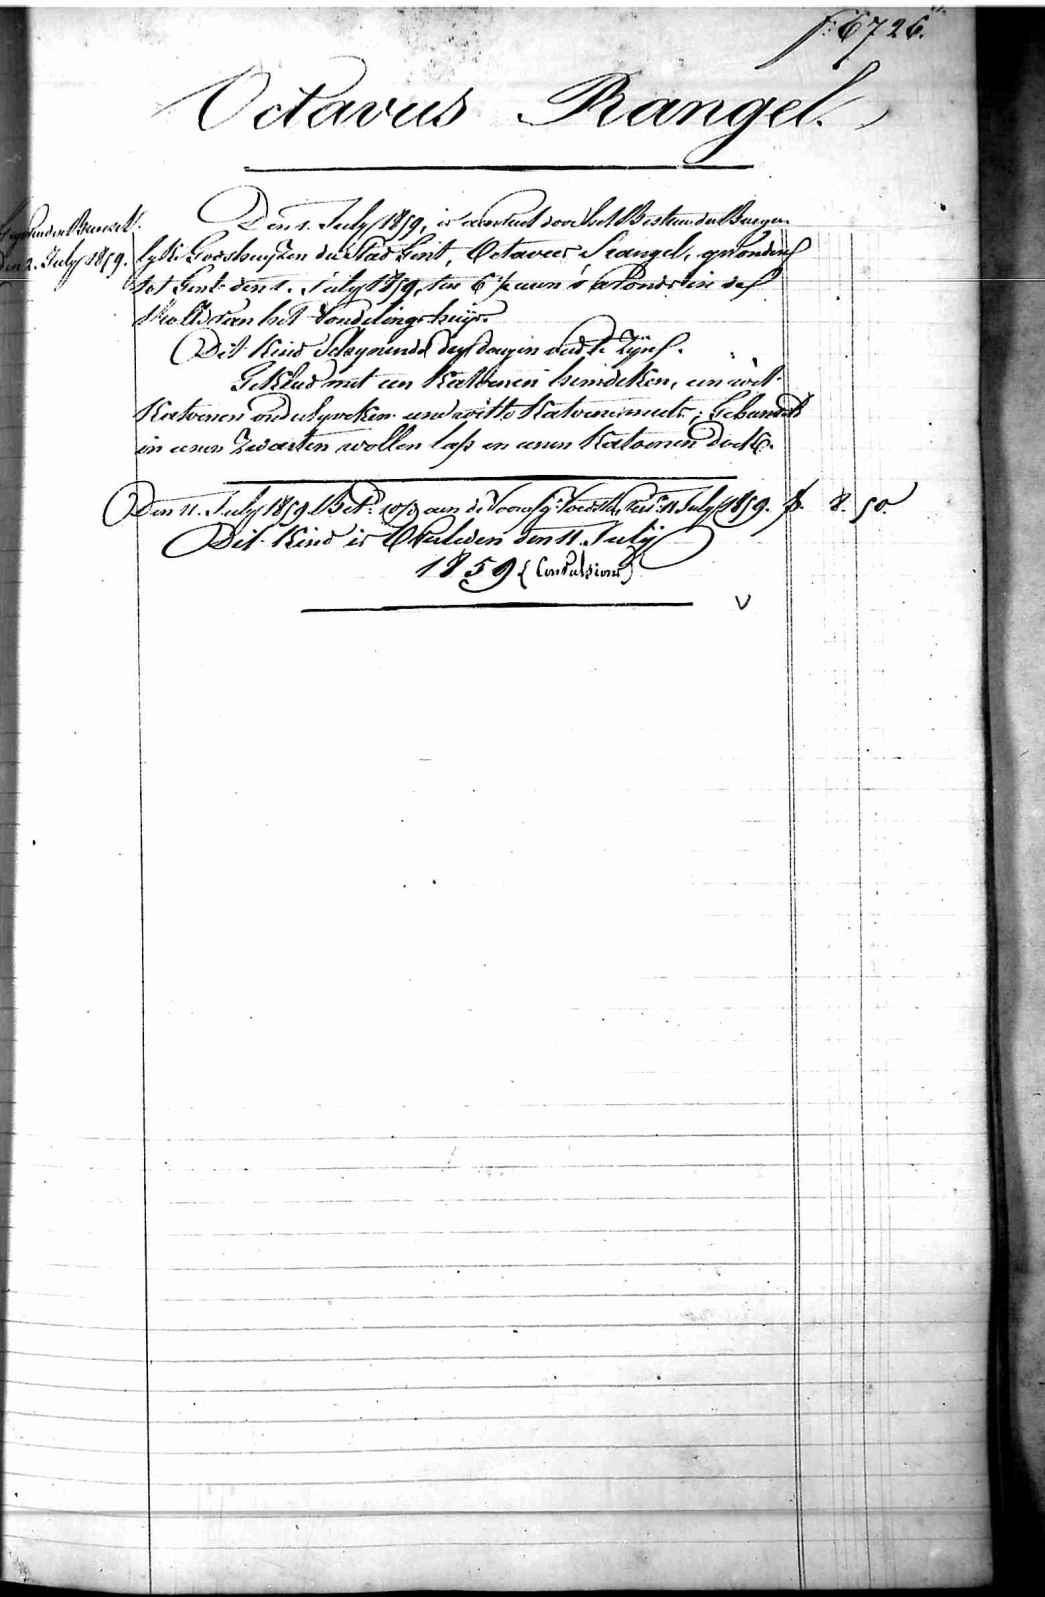 f: 6726.
Octavus Rangel.
Den 1. July 1859, is aenveird door het Bestuur der Burger-
lyke Godshuyzen der Stad Gent, Octavus Rangel, gevonden
tot Gent den 1. July 1859, ten 6 1/2 uren 's avonds in de
van het Vondelingshuijs
Dit Kind Schynende dagen oud te Zijn.
Gekleed met een Katoenen hemdeken, een wit
Katoenen onderlyveken een witte Katoene muts; Gebunderd
in eenen Zwarten wollen lap en eenen Katoenen doek.
den 2. July 1859.
Den 11. July 1859 Bet. aen de Voors. 11 July 1859. f. 8. 50.
Dit Kind is Overleden den 11. July
1859 (Convulsions)
V